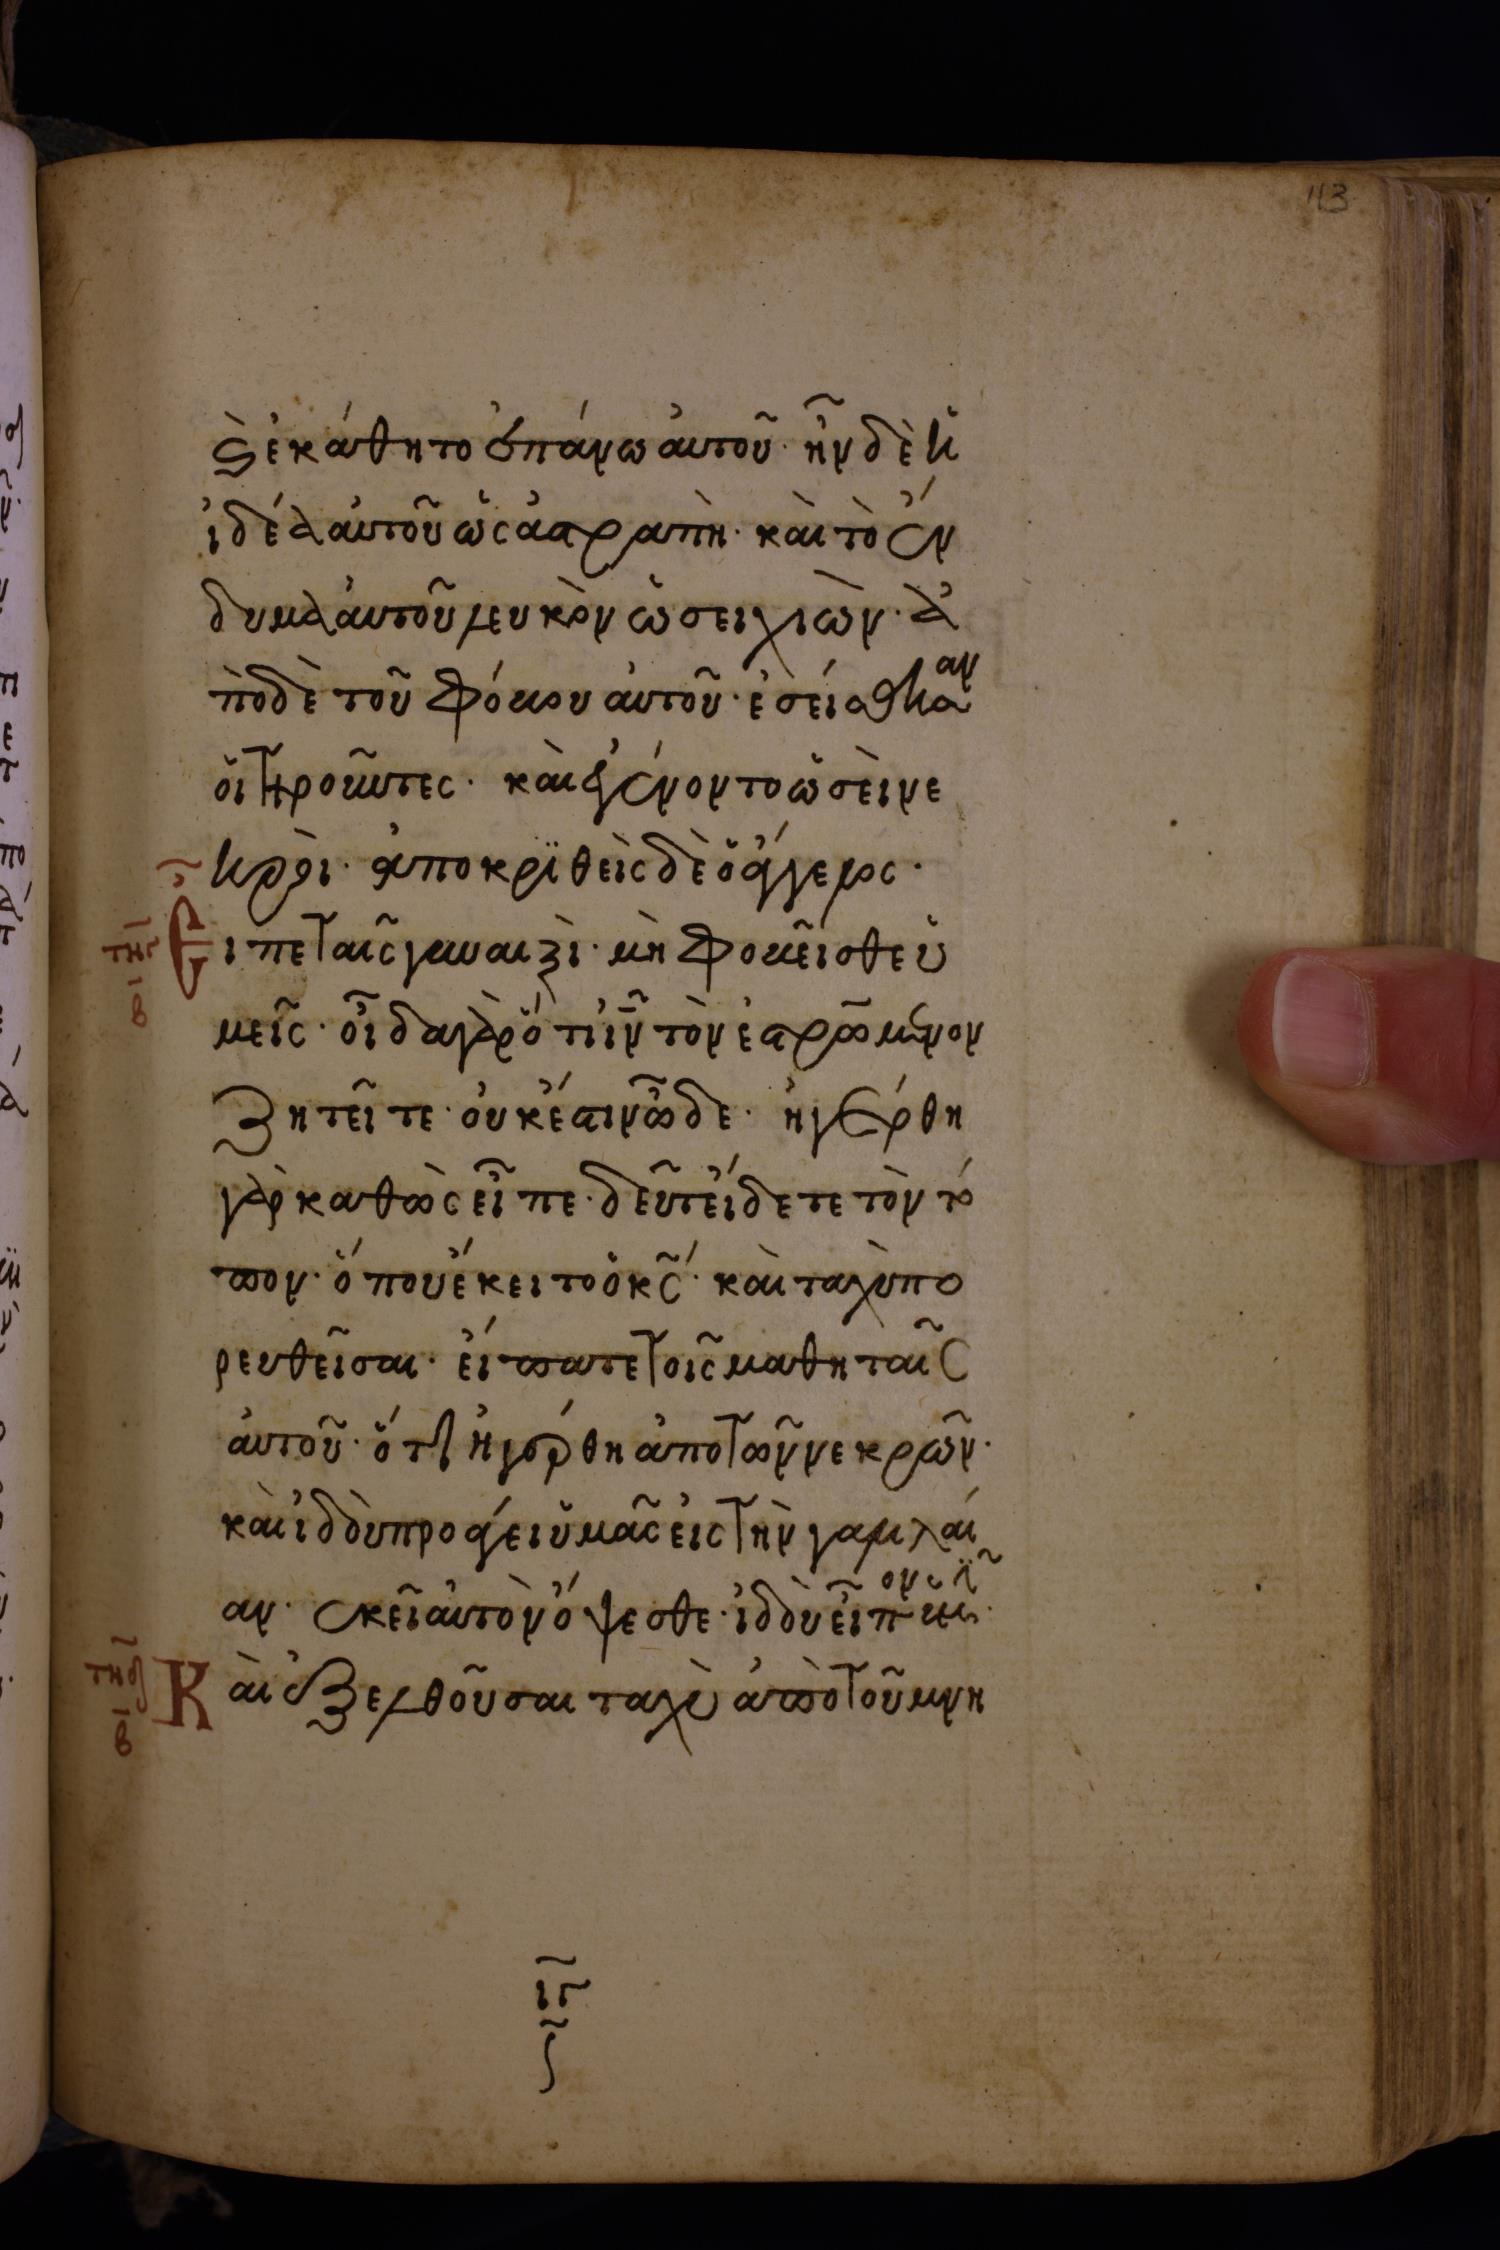 113
καὶ ἐκάθητο ἐπάνω ἀυτοῦ· ἦν δὲ ἡ
ἰδέα ἀυτοῦ ὡς ἀστραπὴ· καὶ τὸ ἔν
δυμα ἀυτοῦ λευκὸν ὡσει χιὼν· ἀ
πὸ δὲ τοῦ φόβου ἀυτοῦ· ἐσείσθησαν
ὁι τηροῦντες· καὶ ἐγένοντο ὡσὲι νε
κρὸι· ἀποκρϊθεὶς δὲ ὁ ἄγγελος·
Εἶπε ταῖς γυναιξὶ· μὴ φοβεῖσθε ὑ
μεῖς· οἶδα γὰρ ὅτι ἰν τὸν ἐσταρωμένον
ζητεῖτε· ὀυκ ἔστιν ὧδε· ἠγέρθη
γὰρ καθὼς εἶπε· δεῦτε ἴδετε τὸν τό
πον· ὅπου ἔκειτο ὁ κς· καὶ ταχὺ πο
ρευθεῖσαι· ἐίπατε τοῖς μαθηταῖς
ἀυτοῦ· ὅτι ἠγέρθη ἀπο τῶν νεκρῶν·
καὶ ἰδοὺ προάγει ὑμᾶς ἐις τὴν γαλιλαί
αν· ἐκεῖ ἀυτὸν ὄψεσθε· ἰδοὺ εἶπον ὑμῖν·
τνε
β
Καὶ ἐξελθοῦσαι ταχὺ ἀπὸ τοῦ μνη
β
ιτ